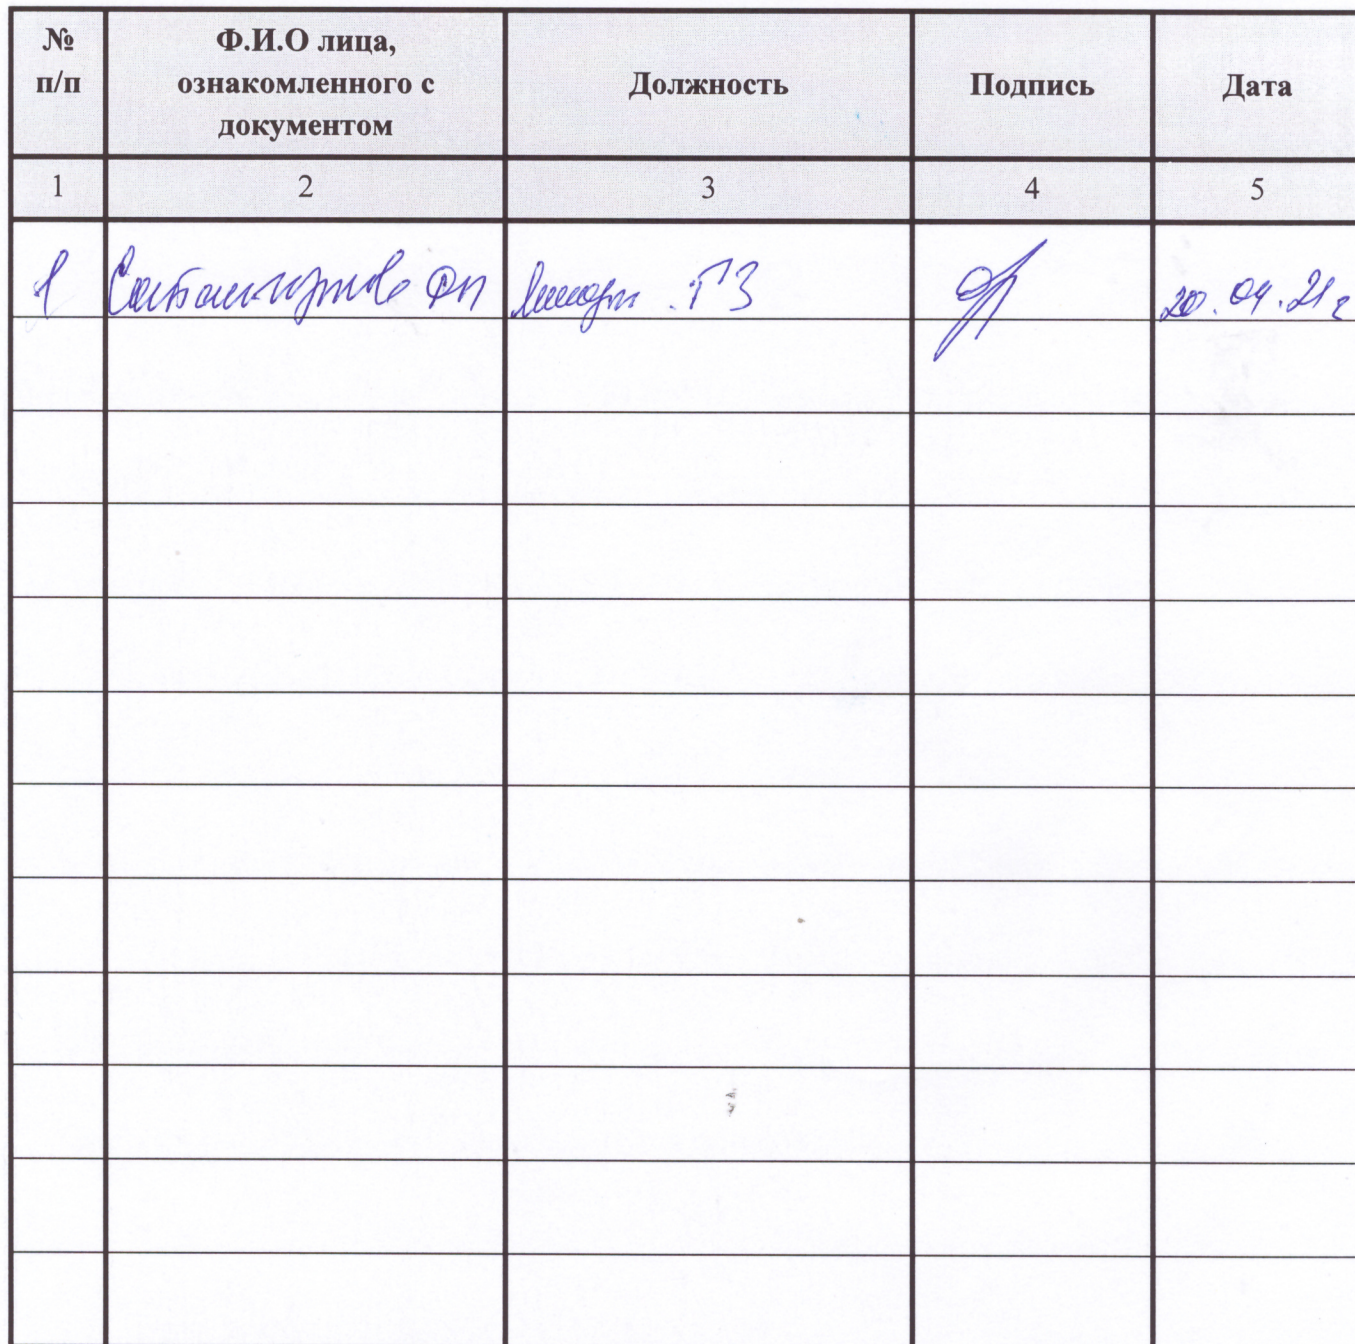 № п/п
Ф.И.О лица, ознакомленного с документом
Должность
Подпись
Дата
1 2 3 4 5
1 ТЗ 20.04.21г